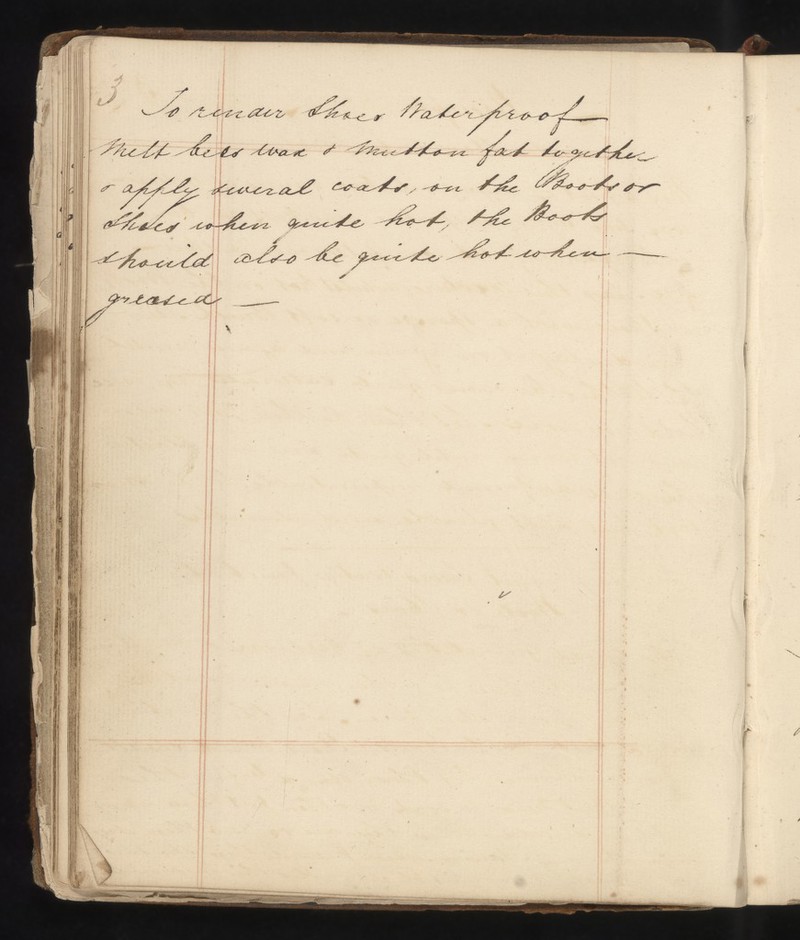 3
To render Shoes Waterproof
Melt bees wax & Mutton fat together
& apply several coats, on the Boots or
Shoes when quite hot, the Boots
should also be quite hot when —
greased —